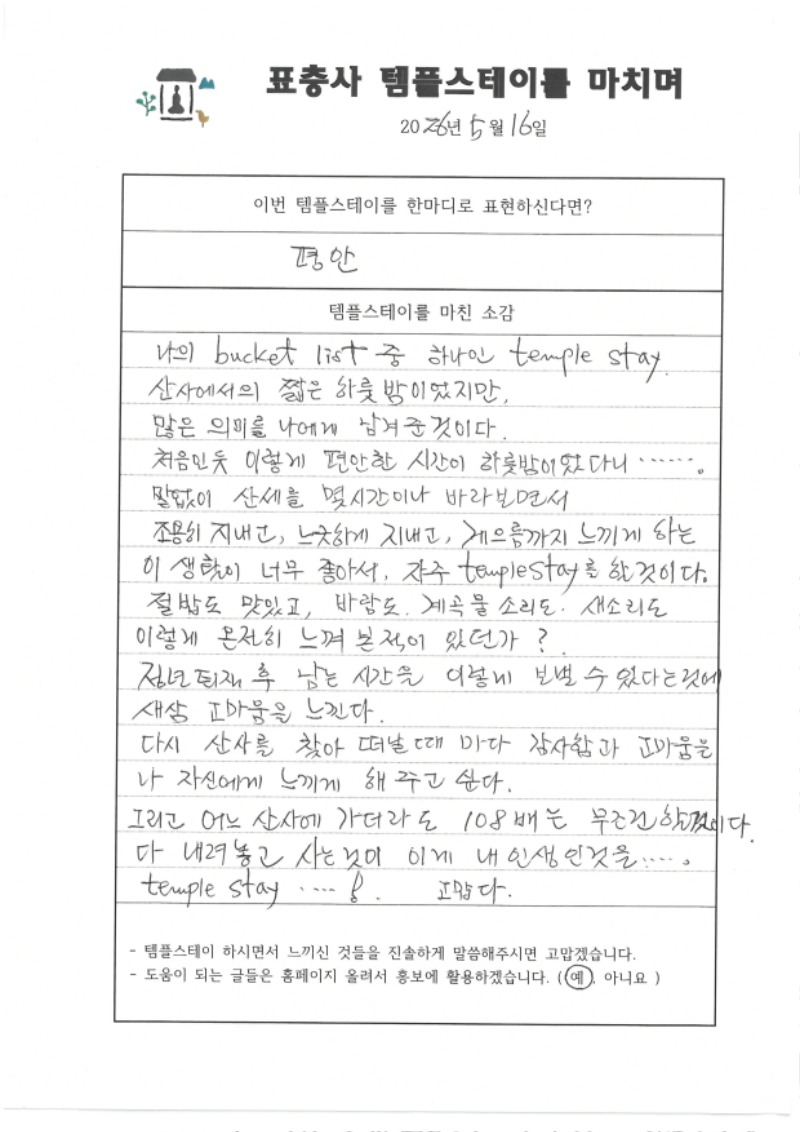 표충사 템플스테이를 마치며
2026년 5월 16일
이번 템플스테이를 한마디로 표현하신다면?
평안
템플스테이를 마친 소감
나의 bucket list 중 하나인 temple stay.
산사에서의 짧은 하룻밤이었지만,
많은 의미를 나에게 남겨준것이다.
처음인듯 이렇게 편안한 시간이 하룻밤이었다니 ·······。
말없이 산세를 몇시간이나 바라보면서
조용히 지내고, 느긋하게 지내고, 게으름까지 느끼게 하는
이 생활이 너무 좋아서, 자주 temple stay를 할것이다.
절밥도 맛있고, 바람도. 계곡물 소리도. 새소리도
이렇게 온전히 느껴 본적이 있던가 ?.
정년퇴재 후 남는 시간을 이렇게 보낼 수 있다는것에
새삼 고마움을 느낀다.
다시 산사를 찾아 떠날때 마다 감사함과 고마움을
나 자신에게 느끼게 해 주고 싶다.
그리고 어느 산사에 가더라도 108배는 무조건 할것이다.
다 내려놓고 사는것이 이게 내 인생인것을·····。
temple stay ····. 고맙다.
- 템플스테이 하시면서 느끼신 것들을 진솔하게 말씀해주시면 고맙겠습니다.
- 도움이 되는 글들은 홈페이지 올려서 홍보에 활용하겠습니다. ( 예, 아니요 )